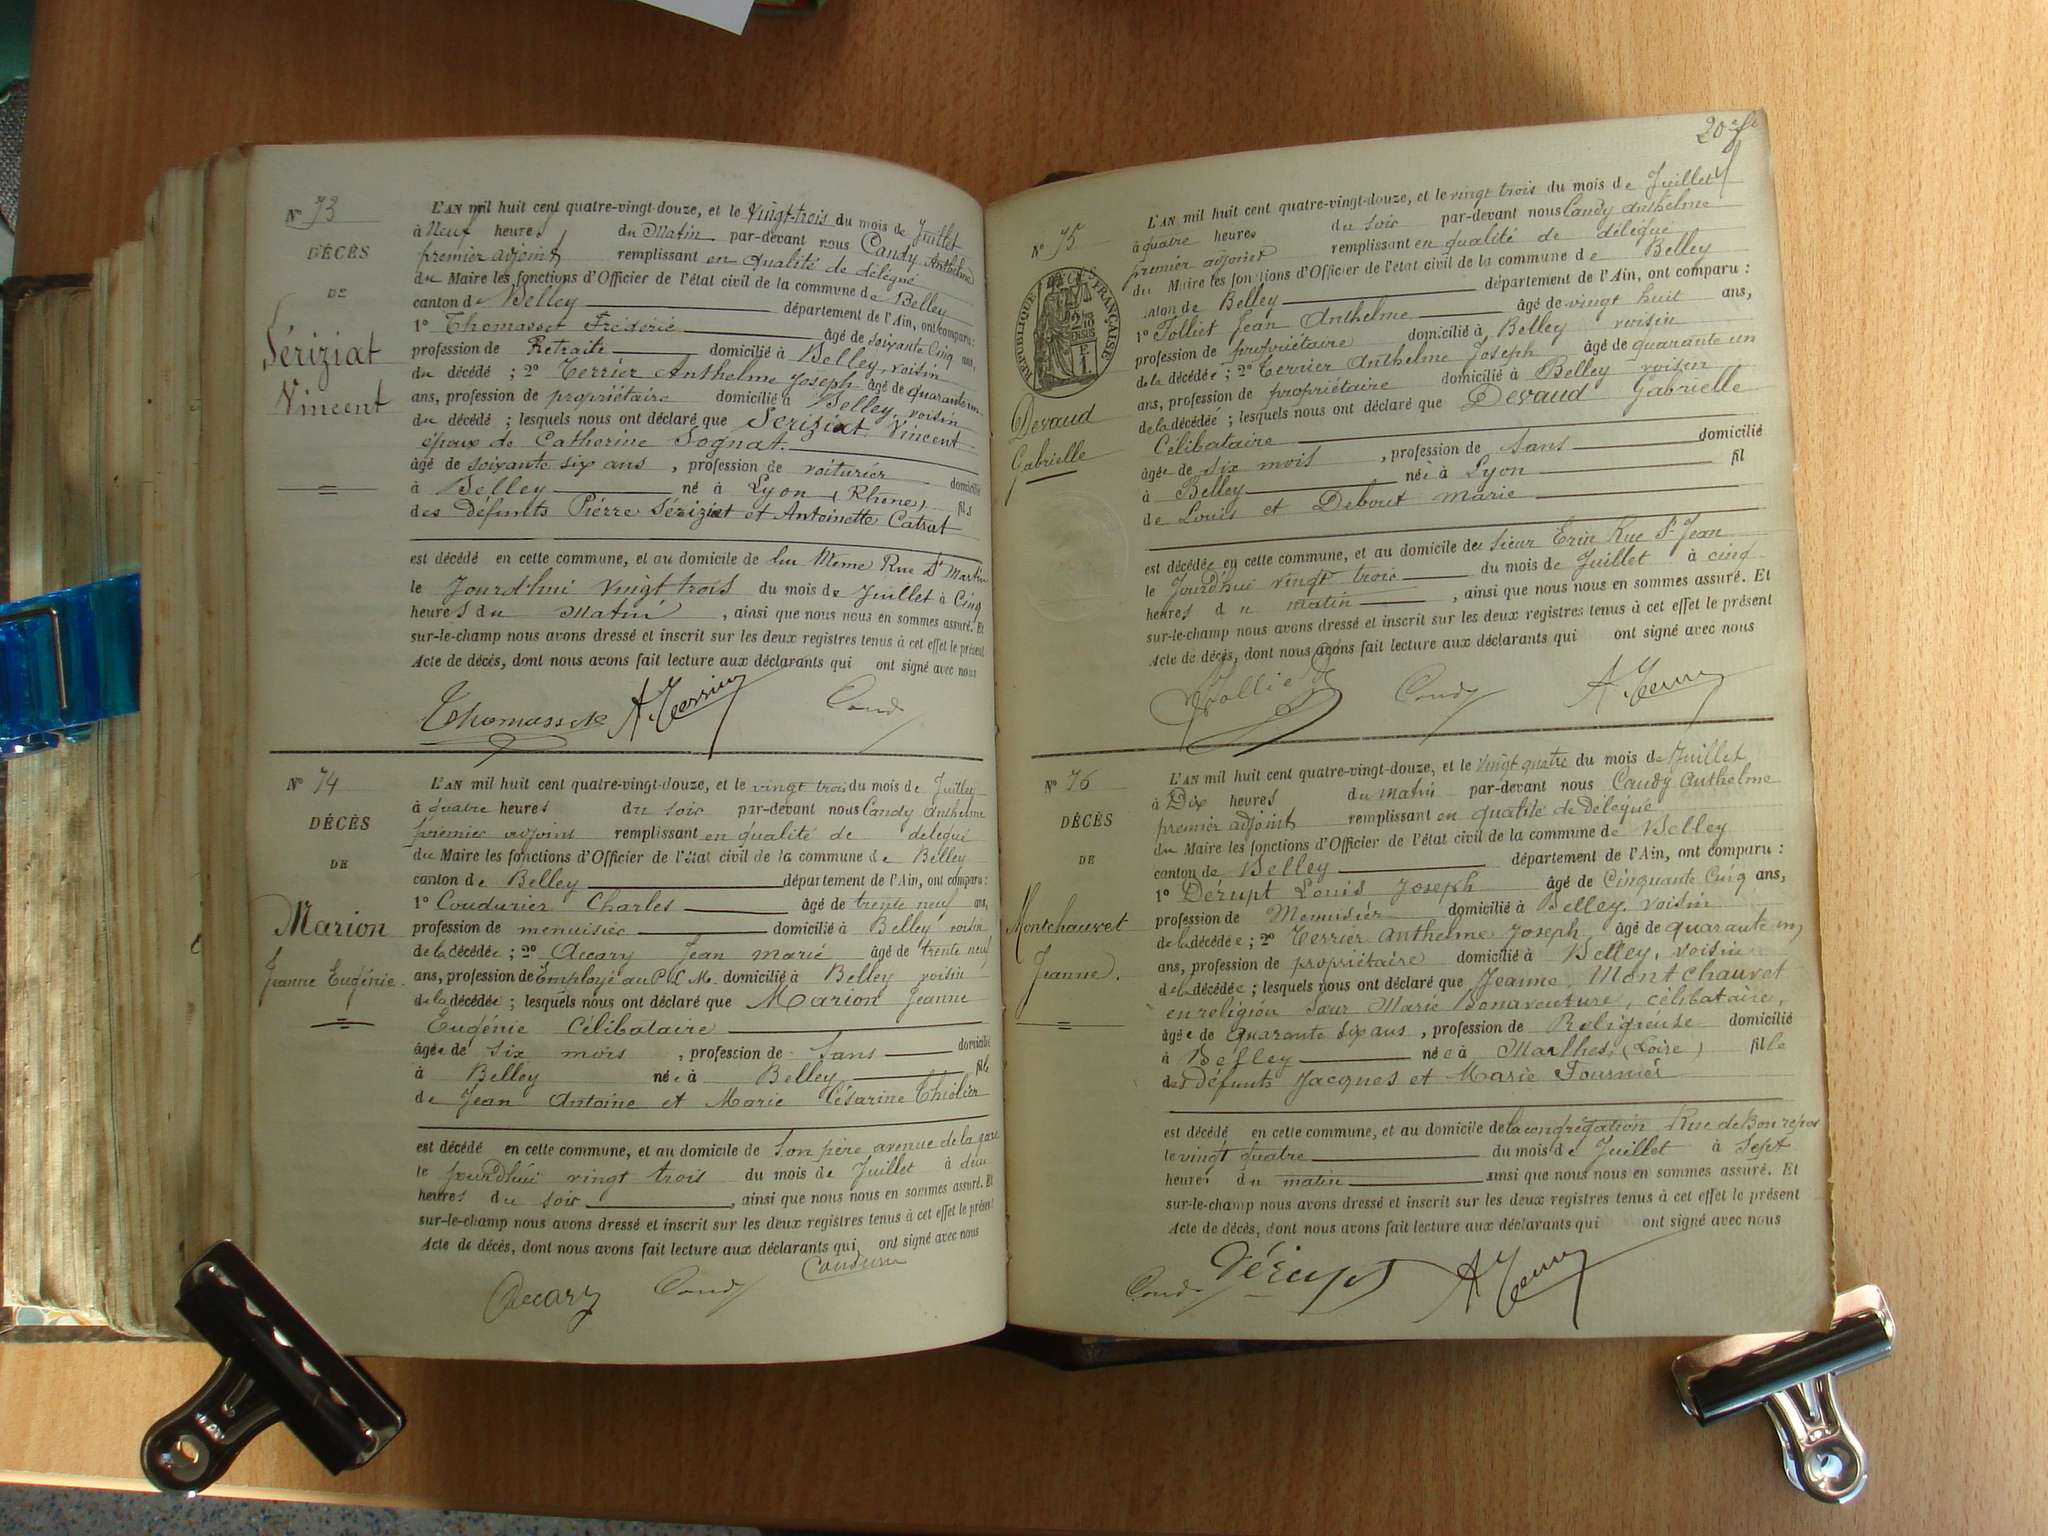 N° 73
DÉCÈS
DE
Sériziat
Vincent
L'AN mil huit cent quatre-vingt-douze, et le Vingt-trois du mois de Juillet
à Neuf heures du Matin par-devant nous Candy Anthelme
premier adjoint remplissant en Qualité de délégué
du Maire les fonctions d'Officier de l'état civil de la commune de Belley
canton de Belley département de l'Ain, ont comparu :
1° Thomasset Frédéric âgé de soixante Cinq ans,
profession de Retraité domicilié à Belley, voisin
du décédé ; 2° Terrier Anthelme Joseph âgé de quarante un
ans, profession de propriétaire domicilié à Belley, voisin
du décédé ; lesquels nous ont déclaré que Sériziat Vincent
époux de Catherine Sognat.
âgé de soixante six ans , profession de voiturier domicilié
à Belley né à Lyon (Rhone) fils
des défunts Pierre Sériziat et Antoinette Catrat
est décédé en cette commune, et au domicile de lui Meme Rue St Martin
le Jourd'hui vingt trois du mois de Juillet à Cinq
heures du Matin , ainsi que nous nous en sommes assuré. Et
sur-le-champ nous avons dressé et inscrit sur les deux registres tenus à cet effet le présent
Acte de décès, dont nous avons fait lecture aux déclarants qui ont signé avec nous
Thomasset A. Terrier Candy
N° 74
DÉCÈS
DE
Marion
Jeanne Eugénie.
L'AN mil huit cent quatre-vingt-douze, et le vingt trois du mois de Juillet
à quatre heures du soir par-devant nous Candy Anthelme
premier adjoint remplissant en qualité de délégué
du Maire les fonctions d'Officier de l'état civil de la commune de Belley
canton de Belley département de l'Ain, ont comparu :
1° Coudurier Charles âgé de trente neuf ans,
profession de menuisier domicilié à Belley voisin
de la décédée ; 2° Accary Jean Marie âgé de trente neuf
ans, profession de Employé au P.L.M. domicilié à Belley voisin
de la décédée ; lesquels nous ont déclaré que Marion Jeanne
Eugénie Célibataire
âgée de six mois , profession de sans domicilié
à Belley née à Belley fille
de Jean Antoine et Marie Césarine Thiolier
est décédé en cette commune, et au domicile de son père avenue de la gare
le jourd'hui vingt trois du mois de Juillet à deux
heures du soir , ainsi que nous nous en sommes assuré. Et
sur-le-champ nous avons dressé et inscrit sur les deux registres tenus à cet effet le présent
Acte de décès, dont nous avons fait lecture aux déclarants qui ont signé avec nous
Accary Candy Coudurier
N° 75
RÉPUBLIQUE FRANÇAISE
Devaud
Gabrielle
L'AN mil huit cent quatre-vingt-douze, et le vingt trois du mois de Juillet
à quatre heures du soir par-devant nous Candy Anthelme
premier adjoint remplissant en qualité de délégué
du Maire les fonctions d'Officier de l'état civil de la commune de Belley
canton de Belley département de l'Ain, ont comparu :
1° Tolliet Jean Anthelme âgé de vingt huit ans,
profession de propriétaire domicilié à Belley voisin
de la décédée ; 2° Terrier Anthelme Joseph âgé de quarante un
ans, profession de propriétaire domicilié à Belley voisin
de la décédé ; lesquels nous ont déclaré que Devaud Gabrielle
Célibataire
âgée de six mois , profession de sans domicilié
à Belley née à Lyon fil
de Louis et Debout Marie
est décédée en cette commune, et au domicile de sieur Erin Rue St Jean
le Jourd'hui vingt trois du mois de Juillet à cinq
heures du matin , ainsi que nous nous en sommes assuré. Et
sur-le-champ nous avons dressé et inscrit sur les deux registres tenus à cet effet le présent
Acte de décès, dont nous avons fait lecture aux déclarants qui ont signé avec nous
Tolliet Candy A. Terrier
N° 76
DÉCÈS
DE
Montchauvet
Jeanne.
L'AN mil huit cent quatre-vingt-douze, et le vingt quatre du mois de Juillet
à Dix heures du matin par-devant nous Candy Anthelme
premier adjoint remplissant en qualité de Délégué
du Maire les fonctions d'Officier de l'état civil de la commune de Belley
canton de Belley département de l'Ain, ont comparu :
1° Dérupt Louis Joseph âgé de Cinquante Cinq ans,
profession de Menuisier domicilié à Belley, voisin
de la décédée ; 2° Terrier Anthelme Joseph âgé de quarante un
ans, profession de propriétaire domicilié à Belley, voisin
de la décédée ; lesquels nous ont déclaré que Jeanne Montchauvet
en religion Sœur Marie Bonaventure, célibataire,
âgée de quarante six ans , profession de Religieuse domicilié
à Belley née à Marlhes (Loire) fille
des défunts Jacques et Marie Fournier
est décédé en cette commune, et au domicile de la congrégation, Rue de Bon repos
le vingt quatre du mois de Juillet à Sept
heures du matin ainsi que nous nous en sommes assuré. Et
sur-le-champ nous avons dressé et inscrit sur les deux registres tenus à cet effet le présent
Acte de décès, dont nous avons fait lecture aux déclarants qui ont signé avec nous
Candy Dérupt A. Terrier